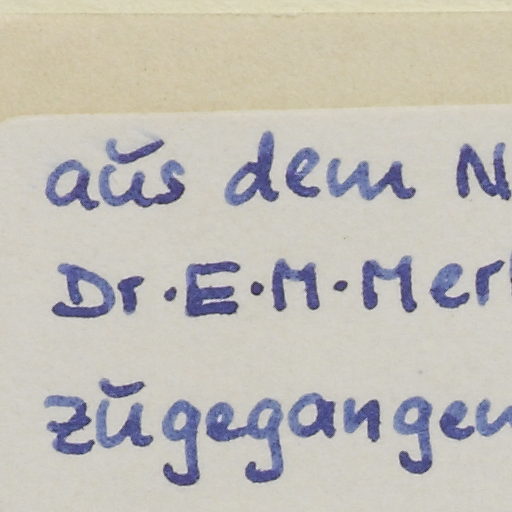 aus dem N
Dr. E. M. Merk
zugegangen